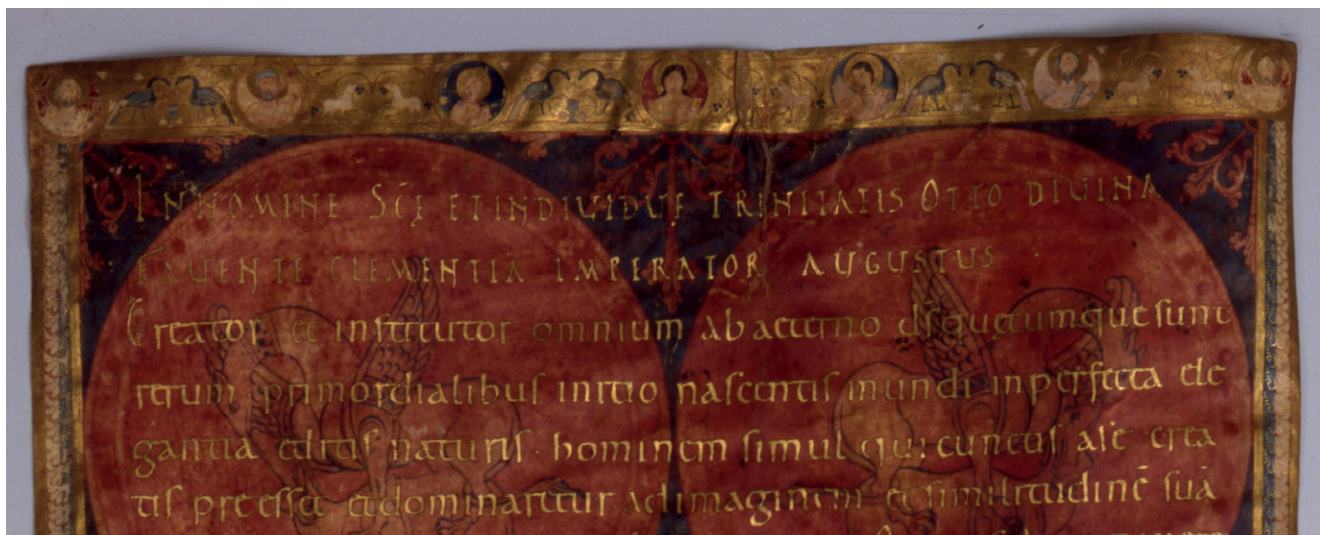 IN NOMINE SC̄Ę ET INDIVIDUĘ TRINITATIS OTTO DIVINA
FAUENTE CLEMENTIA IMPERATOR AUGUSTUS
Creator et institutor omnium ab aeterno quęcumque sunt
rerum primordialibus initio nascentis mundi in perfecta ele
gantia editis naturis · hominem simul qui cunctis alie crea
tis preesset et dominaretur ad imaginem et similitudinē suā